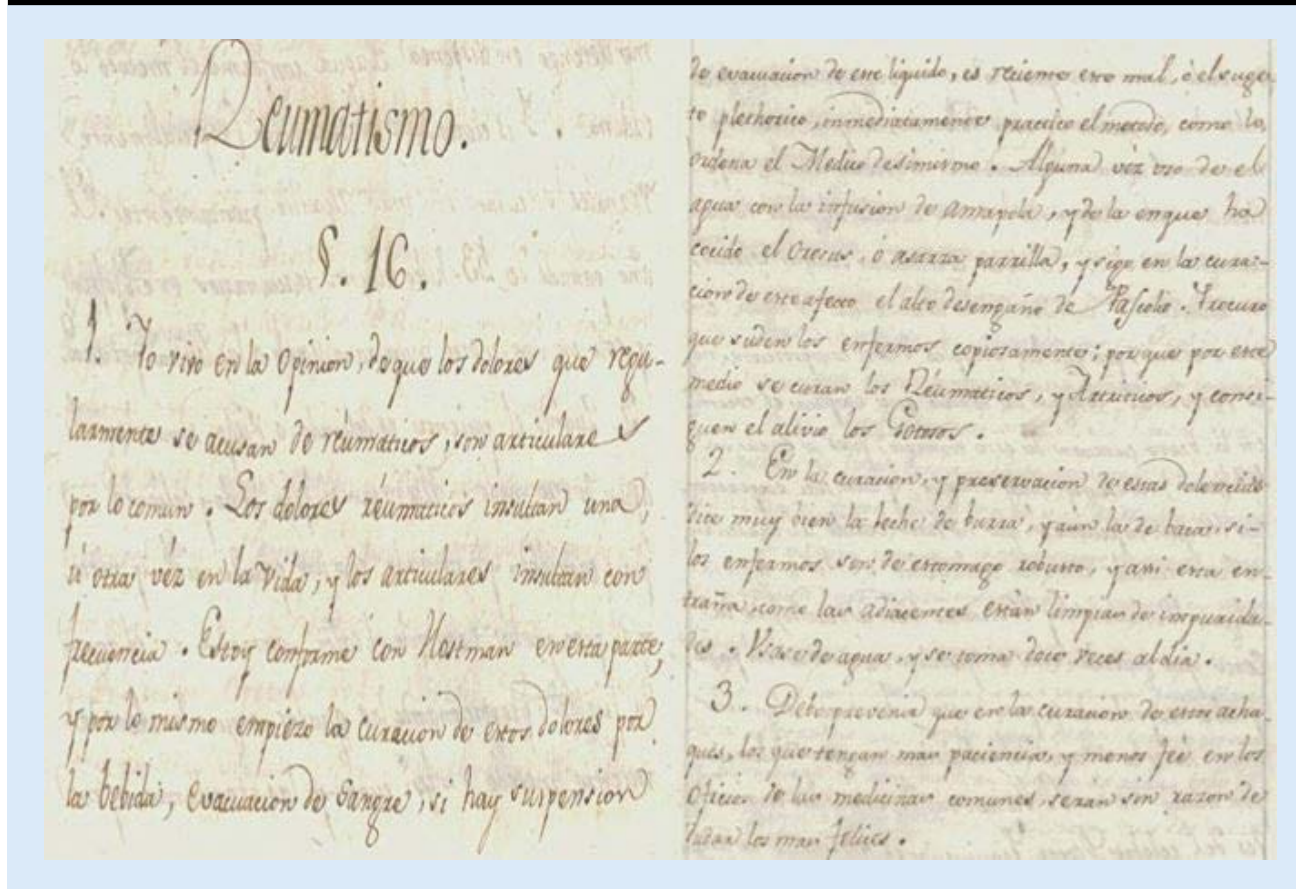 Reumatismo.
§. 16.
1. Yo vivo en la Opinion, de que los dolores que regu-
larmente se acusan de réumaticos, son articulares
por lo comun. Los dolores réumaticos insultan una,
ú otra véz en la vida, y los articulares insultan con
frecuencia. Estoy conforme con Hostman en esta parte,
y por lo mismo empiezo la curacion de estos dolores por
la bebida, evacuacion de sangre, si hay suspension
de evacuacion de este liquido, es reciente este mal, ó el suge-
to plethorico, inmediatamente practico el metodo, como lo
ordena el Medico de simismo. Alguna véz uso de el
agua con la infusion de amapola, y de la en que ha
cocido el ó asarza parrilla, y sigo en la cura-
cion de este afecto el alto desengaño de Pascolio. Procuro
que suden los enfermos copiosamente; por que por este
medio se curan los Réumaticos, y Artriticos, y consi-
guen el alivio los Gotosos.
2. En la curacion, y preservacion de estas dolencias
dice muy bien la leche de burra, y aún la de bacas, si
los enfermos son de estomago robusto, y assi esta en-
traña, como las adiacentes estan limpias de impurida-
des. Usase de agua, y se toma doce veces al dia.
3. Debo prevenir que en la curacion de estos acha-
ques, los que tengan mas paciencia, y menos feé en los
oficios de las medicinas comunes, serán sin razon de
dudar los mas felices.